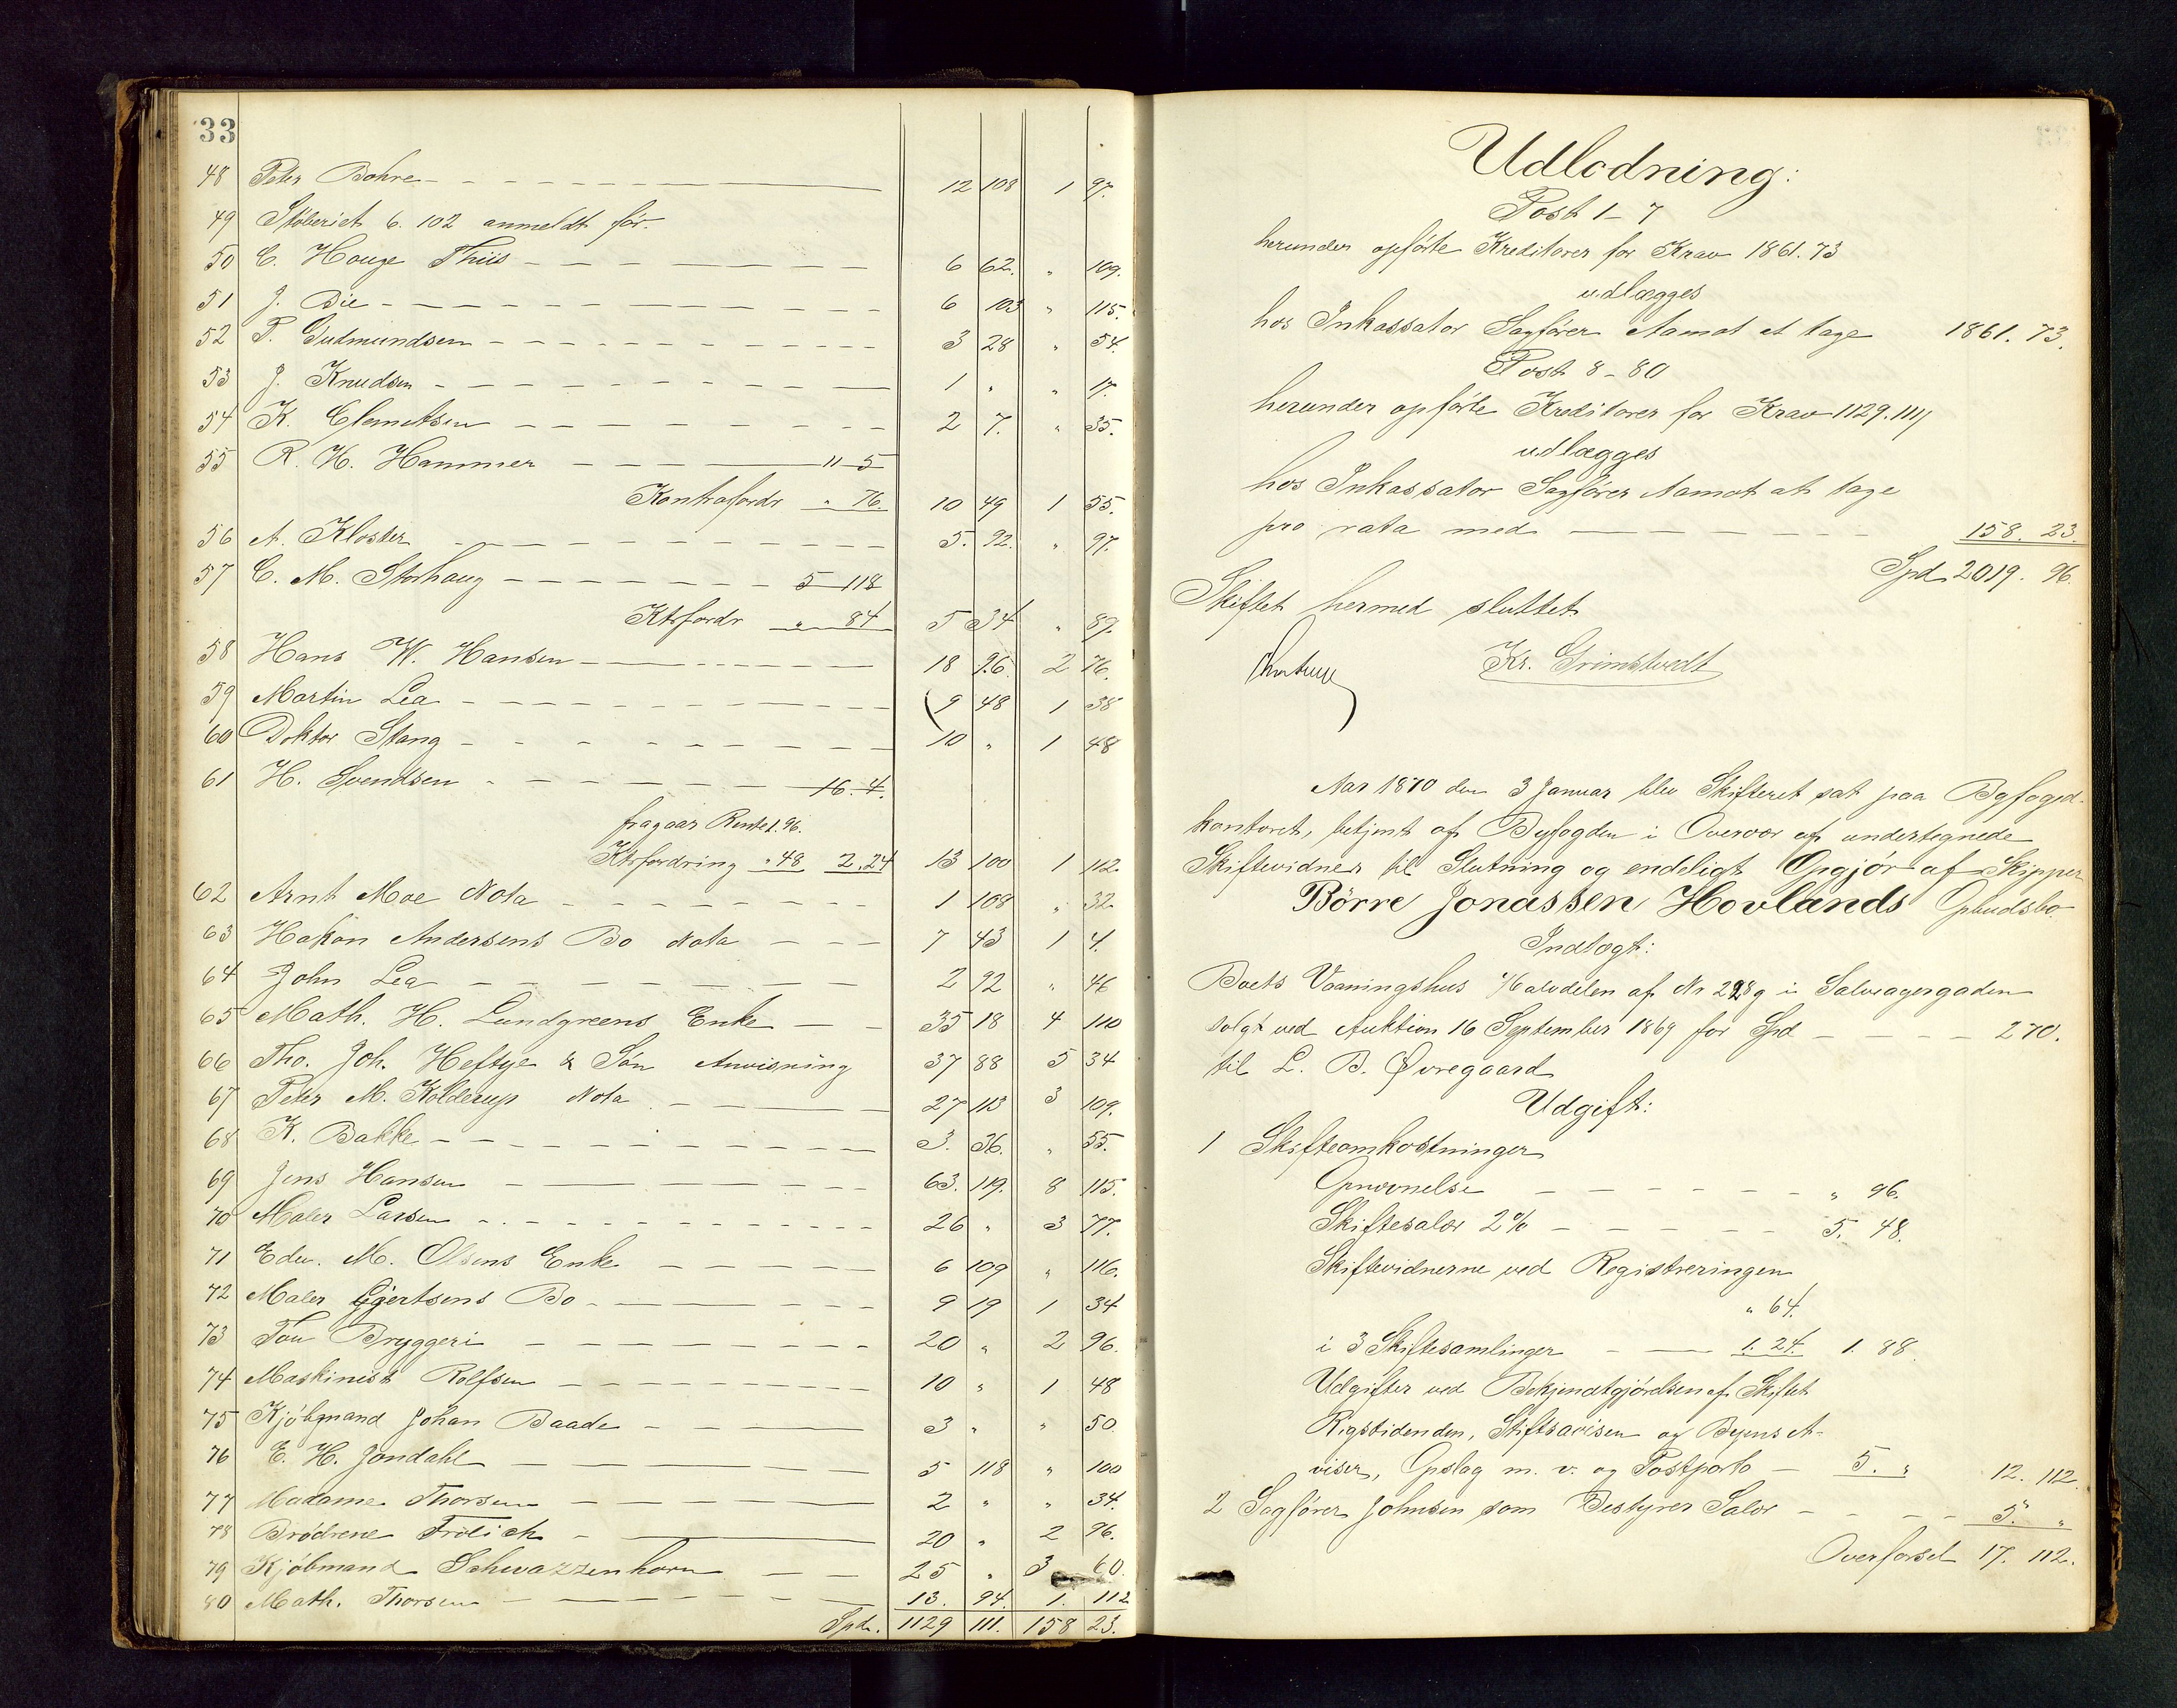 33
48 Peter Bohre 12 108 1 97.
49 Støberiet 6. 102 anmeldt før.
50 C. Houge Thiis 6 62. " 109.
51 J. Bie 6 103 " 115.
52 T. Gudmundsen 3 28 " 54.
53 J. Knudsen 1 " " 17.
54 K. Clemetsen 2 7. " 35.
55 R. H. Hammer 11 5
Kontrafordr " 76. 10 49 1 55.
56 A. Kloster 5. 92. " 97.
57 C. M. Storhoug 5 118
Ktrfordr " 84 5 34 " 89.
58 Hans W. Hansen 18 96. 2 76.
59 Martin Lea 9 48 1 38
60 Doktor Stang 10 " 1 48
61 H. Svendsen 16. 4.
fragaar Rente 1. 96.
Ktrfordring " 48 2. 24 13 100 1 112.
62 Arnt Moe Nota 1 108 " 32
63 Hakon Andersens Bo Nota 7 43 1 4.
64 John Lea 2 92 " 46
65 Math. H. Lundgreens Enke 35 18 4 110
66 Tho. Joh. Heftye & Søn Anvisning 37 88 5 34
67 Peter M. Kolderup Nota 27 113 3 109.
68 K. Bakke 3. 36. " 55.
69 Jens Hansen 63. 119. 8 115.
70 Maler Larsen 26 " 3 77.
71 Edw. M. Olsens Enke 6 109 " 116.
72 Maler Gjertsens Bo 9 19 1 34
73 Tou Bryggeri 20 " 2 96.
74 Maskinist Rolfsen 10 " 1 48
75 Kjøbmand Johan Baade 3 " " 50
76 E. H. Jondahl 5 118 " 100
77 Madame Thorsen 2 " " 34.
78 Brødrene Frölich 20 " 2 96.
79 Kjøbmand Schwazzenhorn 25 " 3 60.
80 Math. Thorsen 13. 94. 1. 112
Spd. 1129 111. 158 23.
Udlodning:
Post 1-7
herunder opførte Kreditorer for Krav 1861. 73
udlægges
hos Inkassator Sagfører Aamot at tage 1861. 73.
Post 8-80
herunder opførte Kreditorer for Krav 1129. 111
udlægges
hos Inkassator Sagfører Aamot at tage
pro rata med 158. 23.
Spd 2019. 96.
Skiftet hermed sluttet
Kr. Grimstvedt
Aar 1870 den 3 Januar blev Skifteret sat paa Byfoged-
kontoret, betjent af Byfogden i Overvær af undertegnede
Skiftevidner til Slutning og endeligt Opgjør af Skipper
Börre Jonassen Hovlands Opbudsbo.
Indtægt:
Boets Vaaningshus Halvdelen af Nr 298 g i Salvagergaden
solgt ved Auktion 16 September 1869 for Spd 270.
til L. B. Øvregaard
Udgift:
1 Skifteomkostninger
Opnævnelse " 96.
Skiftesalær 2% 5. 48.
Skiftevidnerne ved Registreringen
" 64.
i 3 Skiftesamlinger 1. 24. 1. 88.
Udgifter ved Bekjendtgjørelsen af Skiftet
Rigstidenden, Stiftsavisen og Byens A-
viser, Opslag m. v. og Postporto 5. " 12. 112.
2 Sagfører Johnsen som Bestyrer Salær 5. "
Overførsel 17. 112.